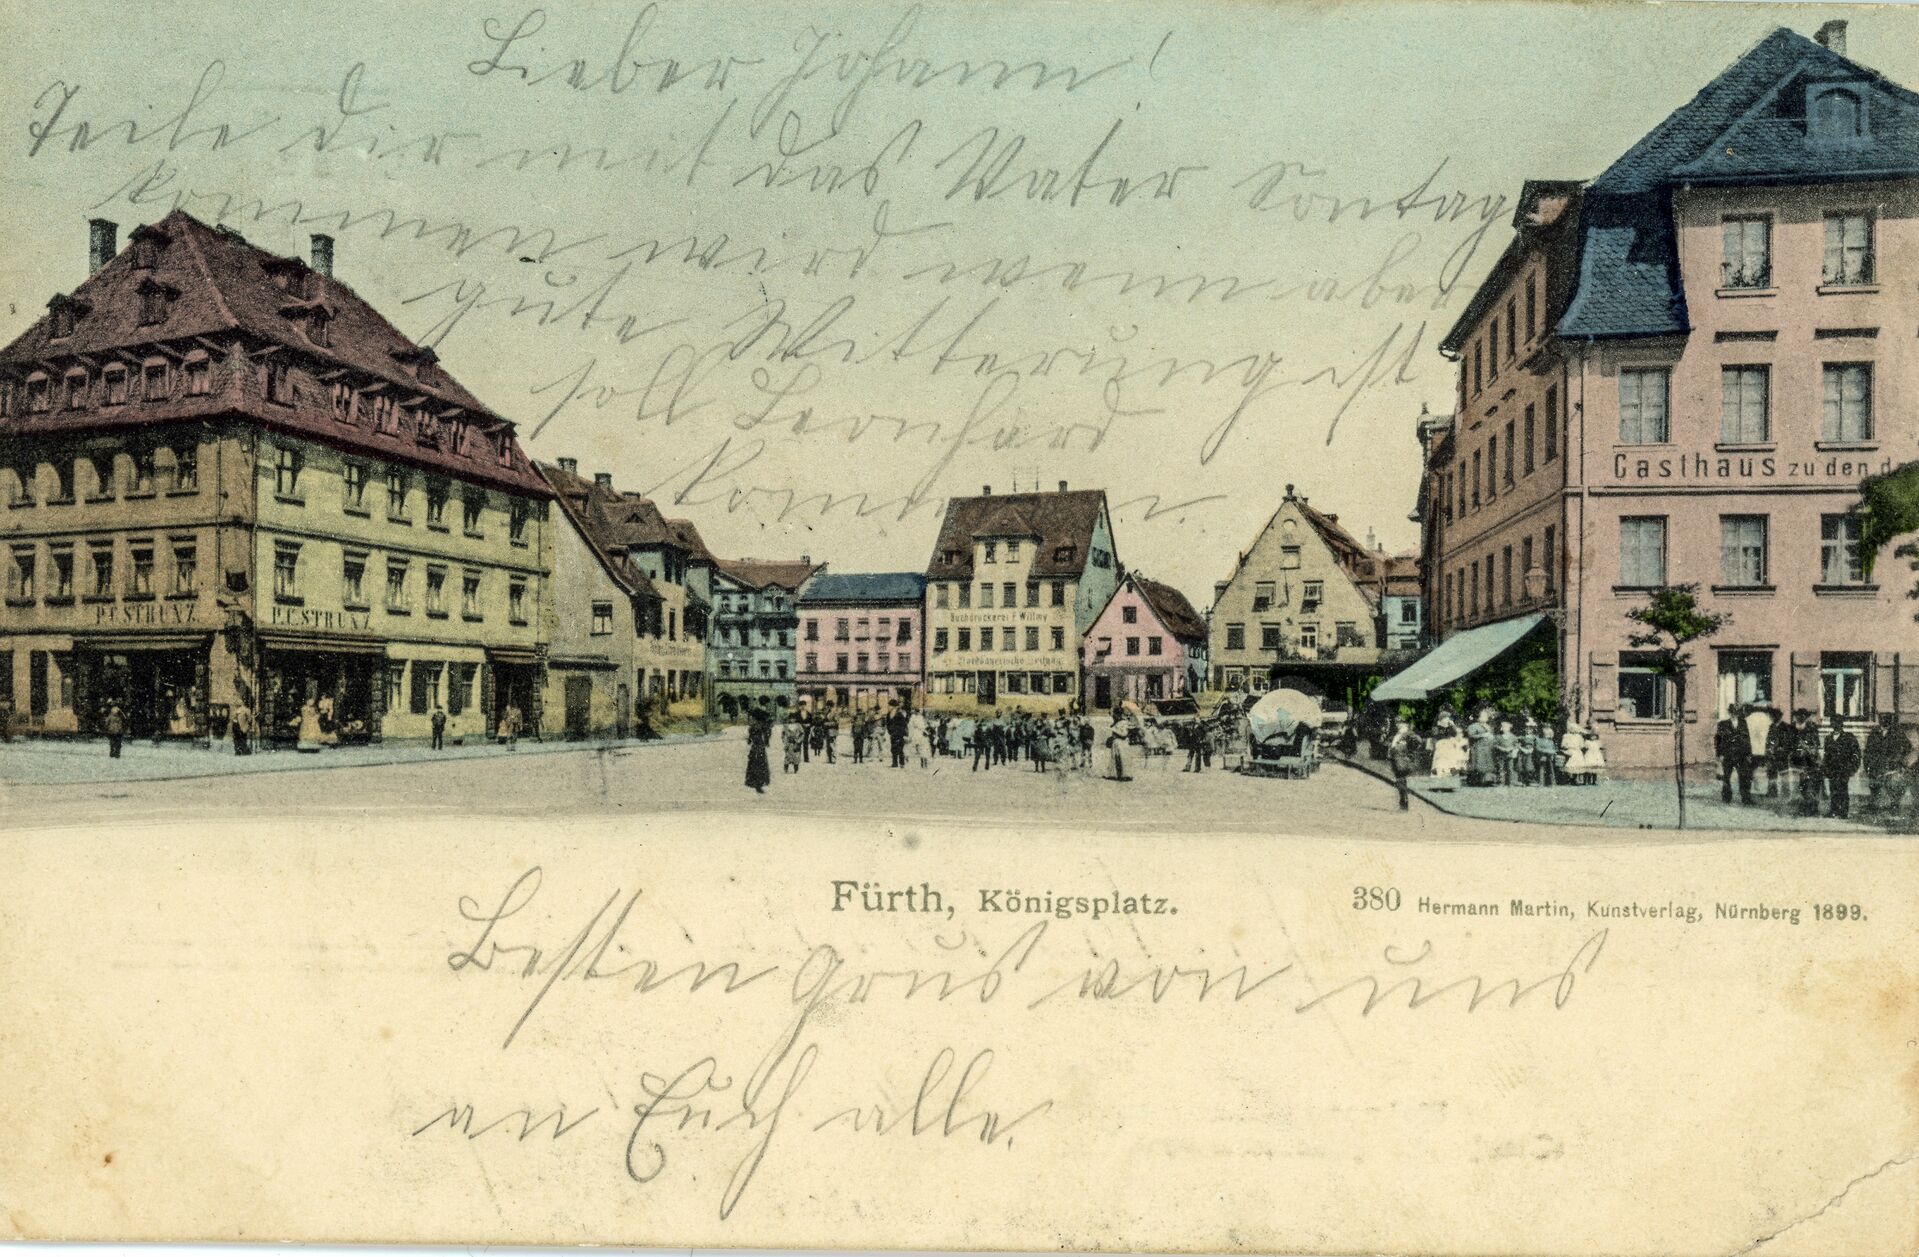 Lieber Johann!
Teile dir mit das Vater Sontag
kommen wird wenn aber
gute Witterung ist
soll Leonhard
kommen.
P. C. STRUNZ.
P. C. STRUNZ
Buchdruckerei
Nordbayerische Zeitung
Gasthaus zu den
Fürth, Königsplatz.
380 Hermann Martin, Kunstverlag, Nürnberg 1899.
Besten Grus von uns
an Euch alle.